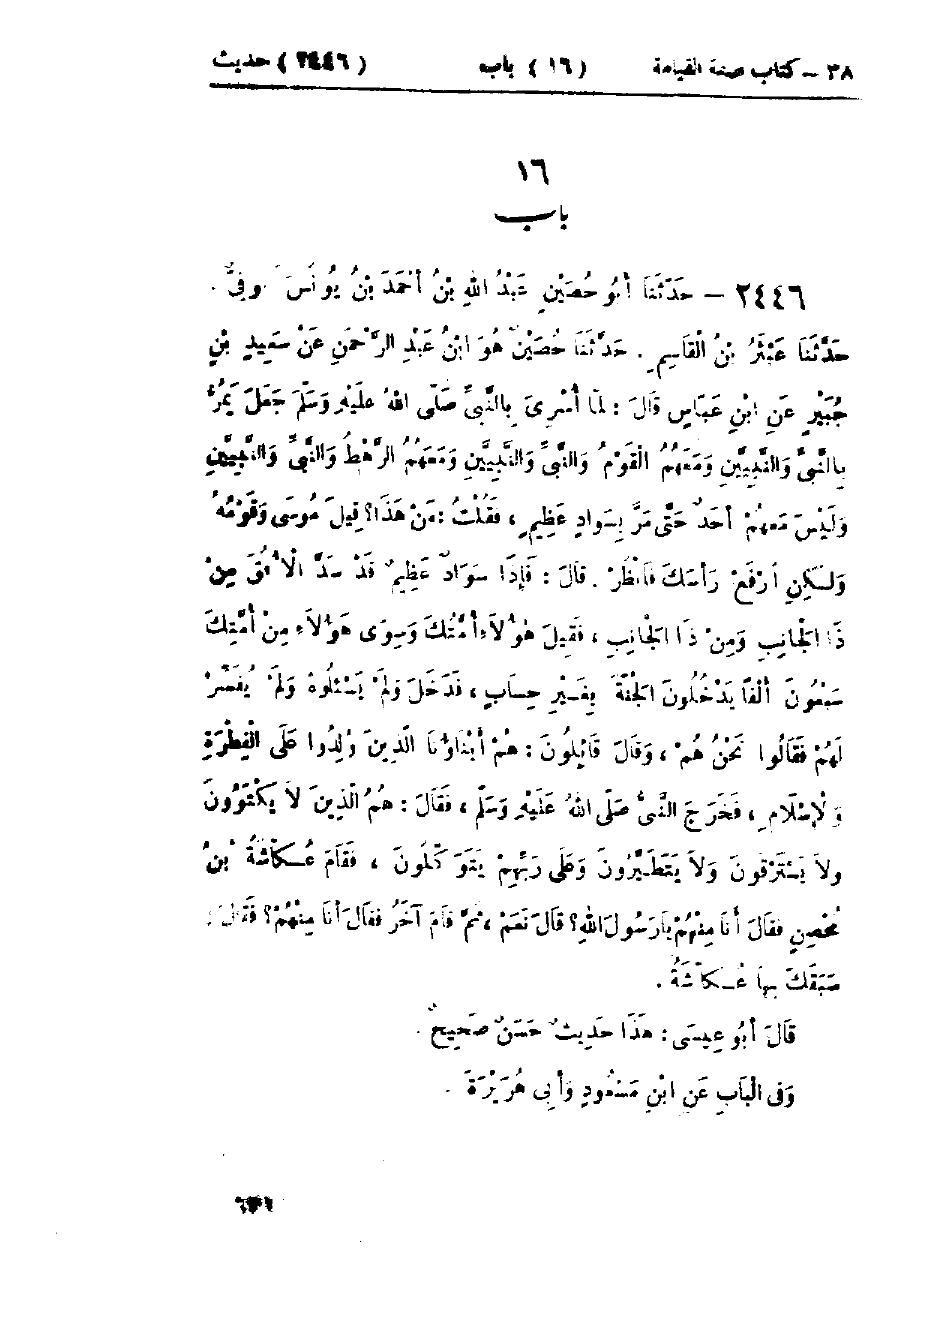 ٣٨ - كتاب صفة القيامة ( ١٦ ) باب ( ٢٤٤٦ ) حديث
١٦
باب
٢٤٤٦ - حَدَّثَنَا أَبُو حُصَيْنٍ عَبْدُ اللهِ بْنُ أَحْمَدَ بْنُ يُونُسَ كُوفِىٌّ .
حَدَّثَنَا عَبْثَرُ بْنُ الْقَاسِمِ . حَدَّثَنَا حُصَيْنٌ هُوَ ابْنُ عَبْدِ الرَّحْمَنِ عَنْ سَعِيدِ بْنِ
جُبَيْرٍ عَنِ ابْنِ عَبَّاسٍ قَالَ : لَمَّا أُسْرِىَ بِالنَّبِىِّ صَلَّى اللهُ عَلَيْهِ وَسَلَّمَ جَعَلَ يَمُرُّ
بِالنَّبِىِّ وَالنَّبِيِّينَ وَمَعَهُمُ الْقَوْمُ وَالنَّبِىِّ وَالنَّبِيِّينَ وَمَعَهُمُ الرَّهْطُ وَالنَّبِىِّ وَالنَّبِيِّينَ
وَلَيْسَ مَعَهُمْ أَحَدٌ حَتَّى مَرَّ بِسَوادٍ عَظِيمٍ ، فَقُلْتُ : مَنْ هَذَا؟ قِيلَ مُوسَى وَقَوْمُهُ
وَلَكِنِ ارْفَعْ رَأْسَكَ فَانْظُرْ . قَالَ : فَإِذَا سَوَادٌ عَظِيمٌ قَدْ سَدَّ الْأُفُقَ مِنْ
ذَا الْجَانِبِ وَمِنْ ذَا الْجَانِبِ ، فَقِيلَ هَؤُلَاءِ أُمَّتُكَ وَسِوَى هَؤُلَاءِ مِنْ أُمَّتِكَ
سَبْعُونَ أَلْفًا يَدْخُلُونَ الْجَنَّةَ بِغَيْرِ حِسَابٍ ، فَدَخَلَ وَلَمْ يَسْئَلُوهُ وَلَمْ يُفَسِّرْ
لَهُمْ فَقَالُوا نَحْنُ هُمْ ، وَقَالَ قَائِلُونَ : هُمْ أَبْنَاؤُنَا الَّذِينَ وُلِدُوا عَلَى الْفِطْرَةِ
وَالْإِسْلَامِ ، فَخَرَجَ النَّبِىُّ صَلَّى اللهُ عَلَيْهِ وَسَلَّمَ ، فَقَالَ : هُمُ الَّذِينَ لَا يَكْتَوُونَ
وَلَا يَسْتَرْقُونَ وَلَا يَتَطَيَّرُونَ وَعَلَى رَبِّهِمْ يَتَوَكَّلُونَ ، فَقَامَ عُكَّاشَةُ بْنُ
مُحْصِنٍ فَقَالَ أَنَا مِنْهُمْ يَا رَسُولَ اللهِ؟ قَالَ نَعَمْ ، ثُمَّ قَامَ آخَرُ فَقَالَ أَنَا مِنْهُمْ؟ فَقَالَ :
سَبَقَكَ بِهَا عُكَّاشَةُ .
قَالَ أَبُو عِيسَى : هَذَا حَدِيثٌ حَسَنٌ صَحِيحٌ .
وَفِى الْبَابِ عَنِ ابْنِ مَسْعُودٍ وَأَبِى هُرَيْرَةَ .